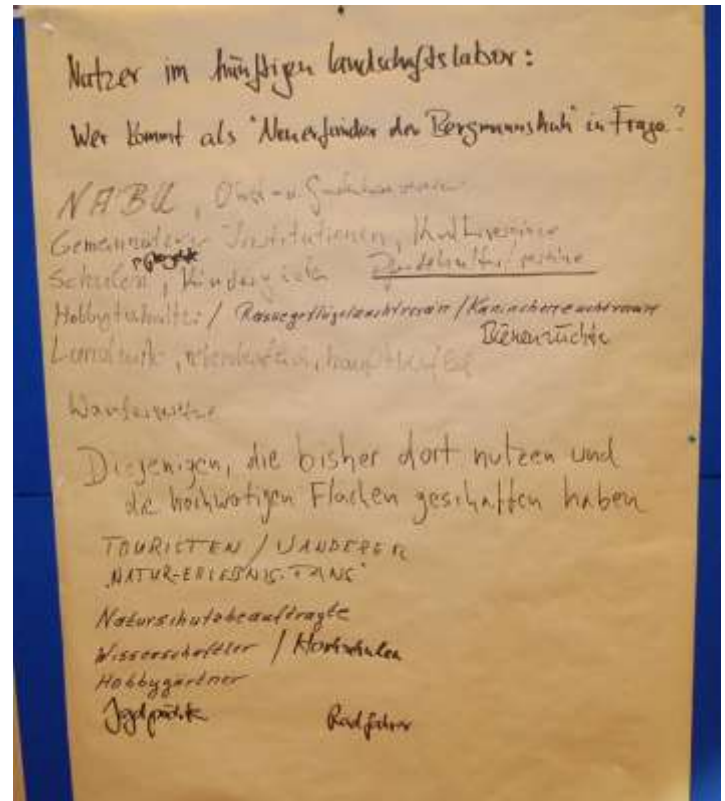 Nutzer im künftigen Landschaftslabor:
Wer kommt als "Neuerfinder der Bergmannskuh" in Frage?
NABU, Obst-u. Gartenbauverein
Gemeinnützige Institutionen,
Schulen, Kindergärten
Hobbytierhalter / Rassegeflügelzuchtverein / Kaninchenzuchtverein
Bienenzüchter
Landwirte,
Diejenigen, die bisher dort nutzen und
die hochwertigen Flächen geschaffen haben
TOURISTEN / WANDERER
"NATUR-ERLEBNIS-FANS"
Naturschutzbeauftragte
Wissenschaftler / Hochschulen
Hobbygärtner
Jagdpächter Radfahrer